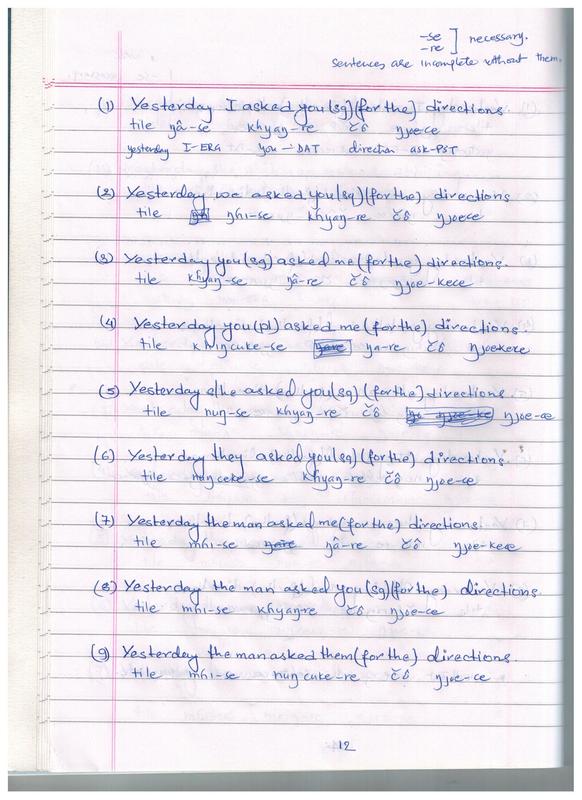 -se ] necessary.
-re
sentences are incomplete without them.
(1) Yesterday I asked you(sg)(for the) directions.
tile ŋâ-se khyaŋ-re čô ŋjoe-ce
yesterday I-ERG you-DAT direction ask-PST
(2) Yesterday we asked you(sg)(for the) directions
tile ŋhi-se khyaŋ-re čô ŋjoece
(3) Yesterday you(sg) asked me (for the) directions.
tile khyaŋ-se ŋâ-re čô ŋjoe-kece
(4) Yesterday you(pl) asked me (for the) directions.
tile khiŋcuke-se ŋa-re čô ŋjoekece
(5) Yesterday s/he asked you(sg) (for the) directions
tile huŋ-se khyaŋ-re čô ŋjoe-ce
(6) Yesterday they asked you(sg) (for the) directions
tile huŋceke-se khyaŋ-re čô ŋjoe-ce
(7) Yesterday the man asked me (for the) directions
tile mhi-se ŋâ-re čô ŋjoe-kece
(8) Yesterday the man asked you (sg)(for the) directions.
tile mhi-se khyaŋ-re čô ŋjoe-ce
(9) Yesterday the man asked them (for the) directions.
tile mhi-se huŋcuke-re čô ŋjoe-ce
12